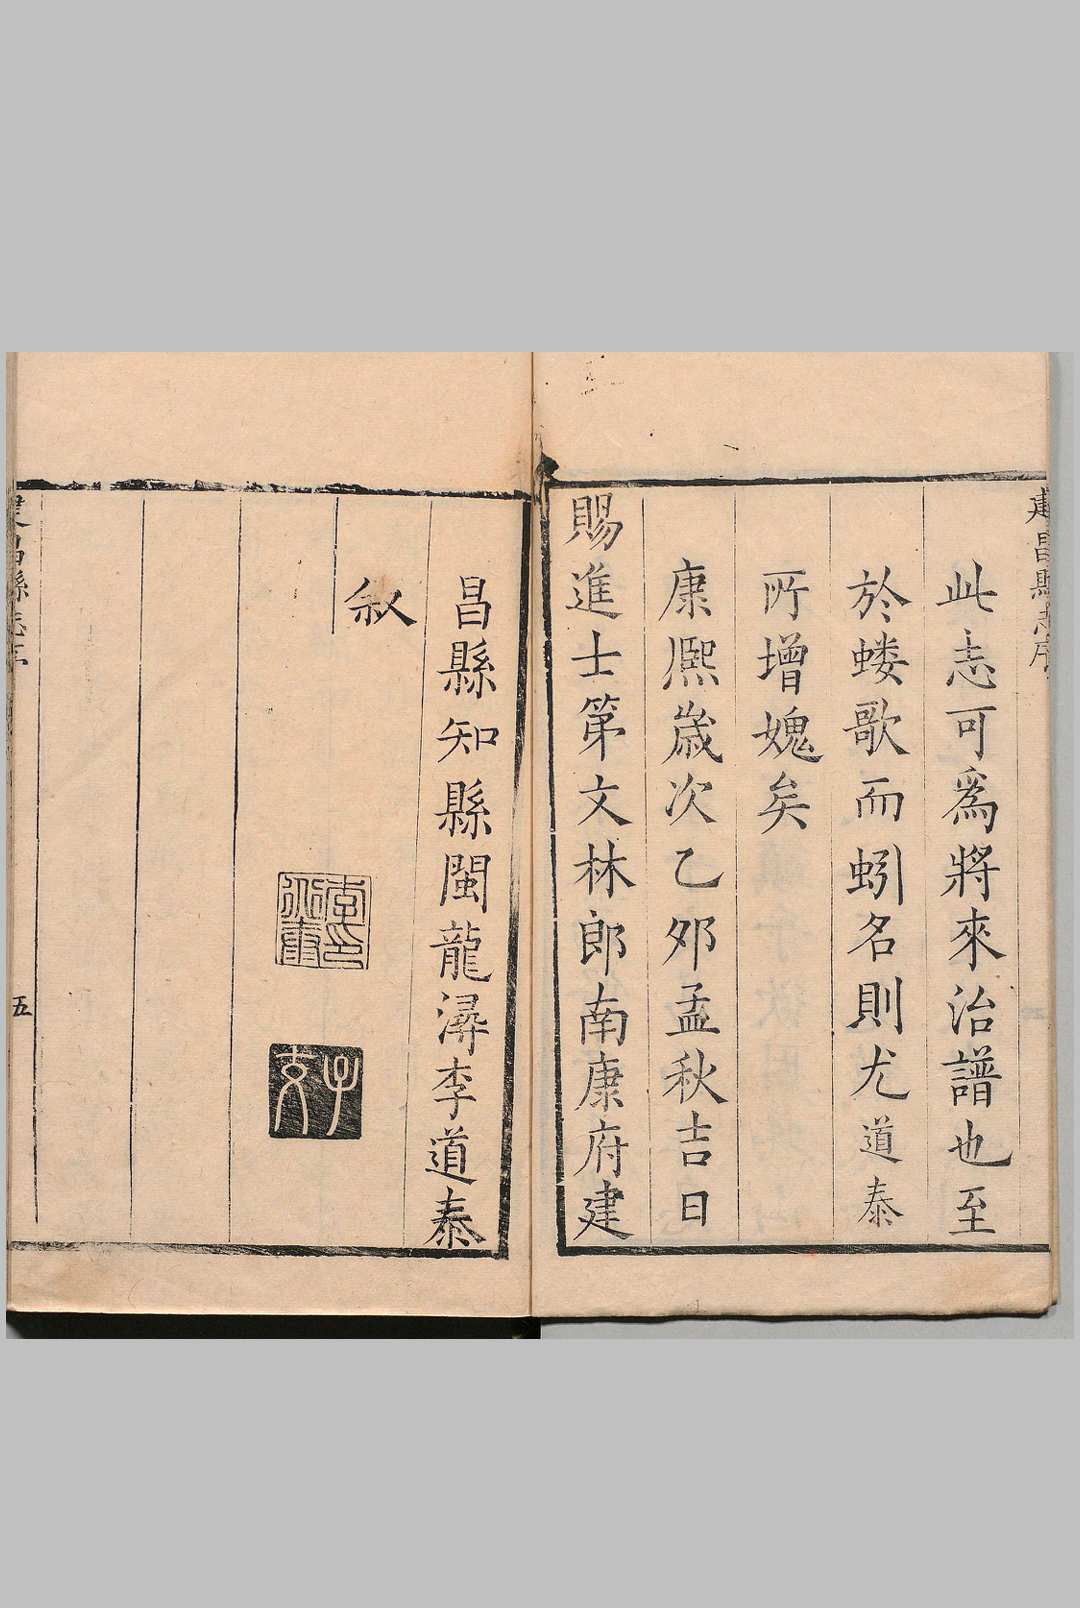 建昌縣志序
此志可爲將來治譜也至
於蝼歌而蚓名則尤道泰
所增媿矣
康熙歲次乙夘孟秋吉日
賜進士第文林郎南康府建
昌縣知縣閩龍潯李道泰
叙
子交
建昌縣志序
五